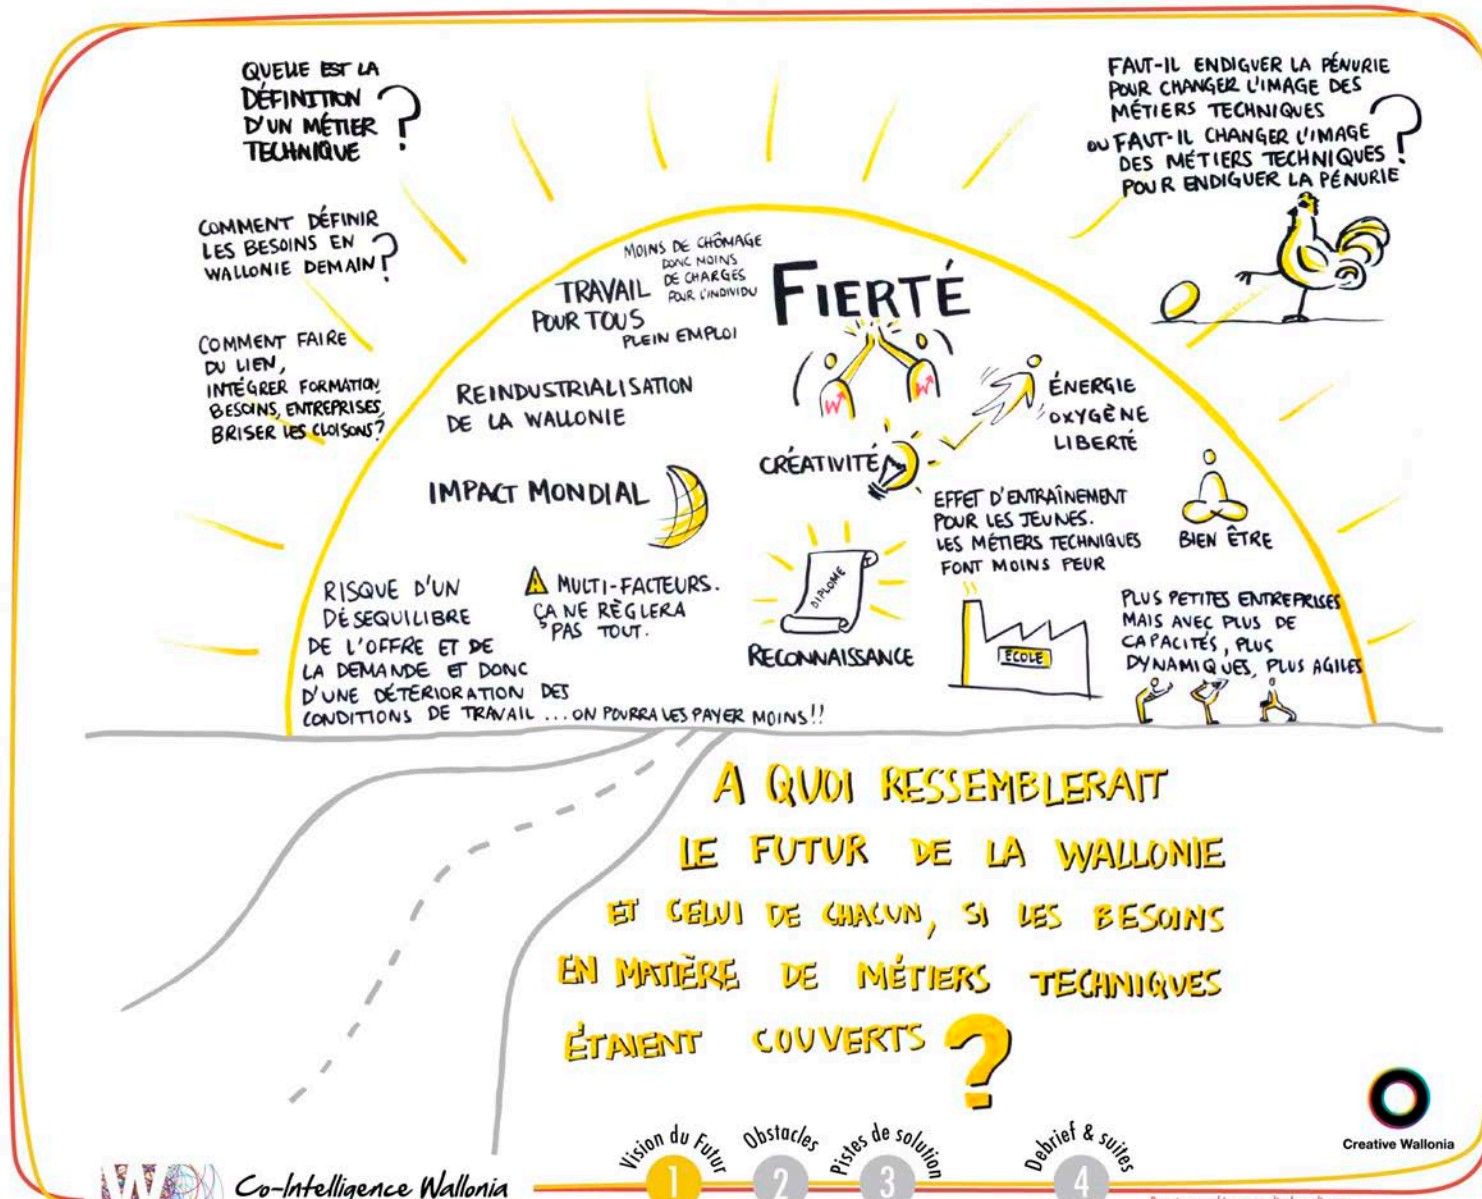 QUELLE EST LA
DÉFINITION
D'UN MÉTIER
TECHNIQUE ?
COMMENT DÉFINIR
LES BESOINS EN
WALLONIE DEMAIN ?
COMMENT FAIRE
DU LIEN,
INTÉGRER FORMATION
BESOINS, ENTREPRISES,
BRISER LES CLOISONS?
FAUT-IL ENDIGUER LA PÉNURIE
POUR CHANGER L'IMAGE DES
MÉTIERS TECHNIQUES
OU FAUT-IL CHANGER L'IMAGE
DES MÉTIERS TECHNIQUES ?
POUR ENDIGUER LA PÉNURIE
MOINS DE CHÔMAGE
DONC MOINS
DE CHARGES
POUR L'INDIVIDU
TRAVAIL
POUR TOUS
PLEIN EMPLOI
FIERTÉ
W
W
REINDUSTRIALISATION
DE LA WALLONIE
ÉNERGIE
OXYGÈNE
LIBERTÉ
CRÉATIVITÉ
IMPACT MONDIAL
EFFET D'ENTRAÎNEMENT
POUR LES JEUNES.
LES MÉTIERS TECHNIQUES
FONT MOINS PEUR
BIEN ÊTRE
RISQUE D'UN
DÉSEQUILIBRE
DE L'OFFRE ET DE
LA DEMANDE ET DONC
D'UNE DÉTÉRIORATION DES
CONDITIONS DE TRAVAIL ... ON POURRA LES PAYER MOINS!!
MULTI-FACTEURS.
ÇA NE RÈGLERA
PAS TOUT.
DIPLOME
RECONNAISSANCE
ÉCOLE
PLUS PETITES ENTREPRISES
MAIS AVEC PLUS DE
CAPACITÉS, PLUS
DYNAMIQUES, PLUS AGILES
A QUOI RESSEMBLERAIT
LE FUTUR DE LA WALLONIE
ET CELUI DE CHACUN, SI LES BESOINS
EN MATIÈRE DE MÉTIERS TECHNIQUES
ÉTAIENT COUVERTS ?
Creative Wallonia
Co-Intelligence Wallonia
Vision du Futur
1
Obstacles
2
Pistes de solution
3
Debrief & suites
4